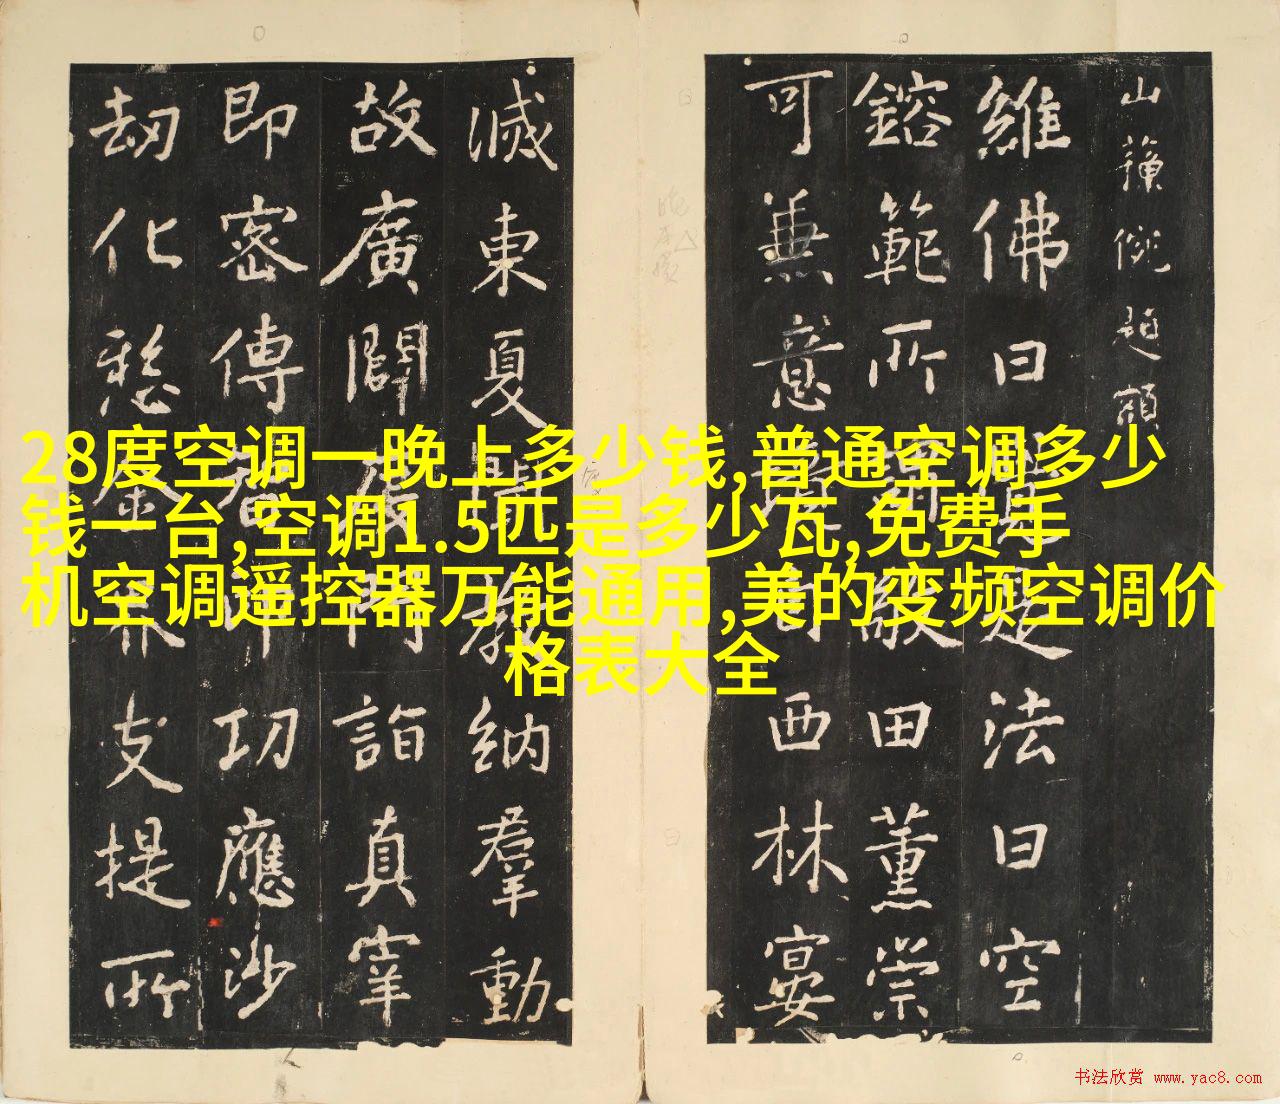 28度空调一晚上多少钱,普通空调多少
钱一台,空调1.5匹是多少瓦,免费手
机空调遥控器万能通用,美的变频空调价
格表大全
山
維佛日是法日空
鎔範所田薰崇
可兼意西林宴
滅東夏闡教納羣動
故廣闢門詣真宰
即密傳印功應沙
劫化愁金界支提所
书法欣赏 www.yac8.com